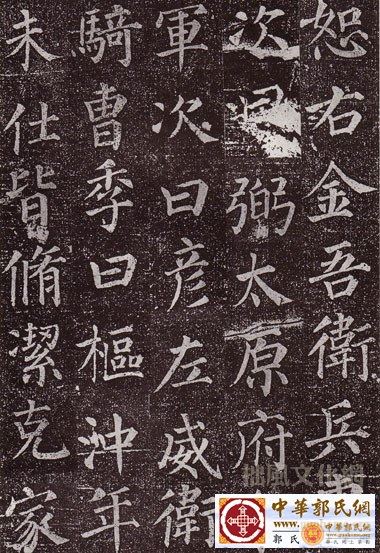 恕右金吾衛兵
次弼太原府
軍次曰彦左威衛
騎曹季曰樞沖年
未仕皆脩潔克家
拙風文化網
中華郭氏網
www.
郭氏
中華郭氏網